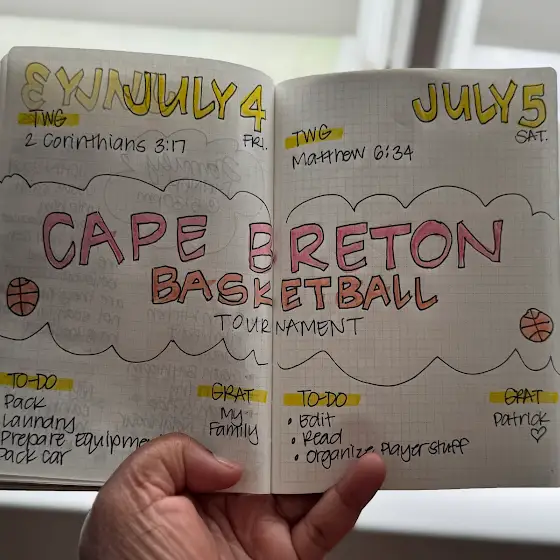 JULY 4
FRI.
TWG
2 Corinthians 3:17
JULY 5
SAT.
TWG
Matthew 6:34
CAPE BRETON
BASKETBALL
TOURNAMENT
TO-DO
Pack
Laundry
Prepare Equipme
Pack car
GRAT
My
Family
TO-DO
• Edit
• Read
• Organize Player stuff
GRAT
Patrick
♡